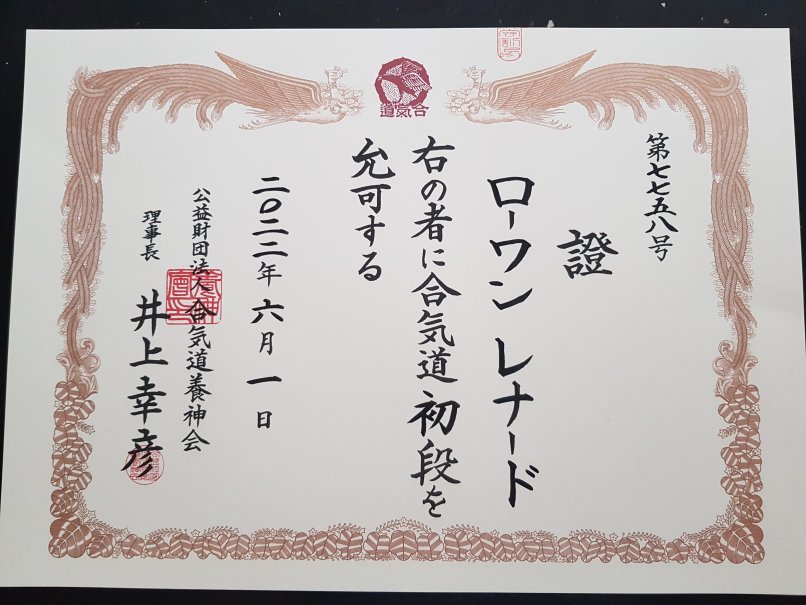 合氣道
第七七五八号
證
ローワン レナード
右の者に合気道初段を
允可する
二〇二二年六月一日
公益財団法人合気道養神会
理事長 井上幸彦